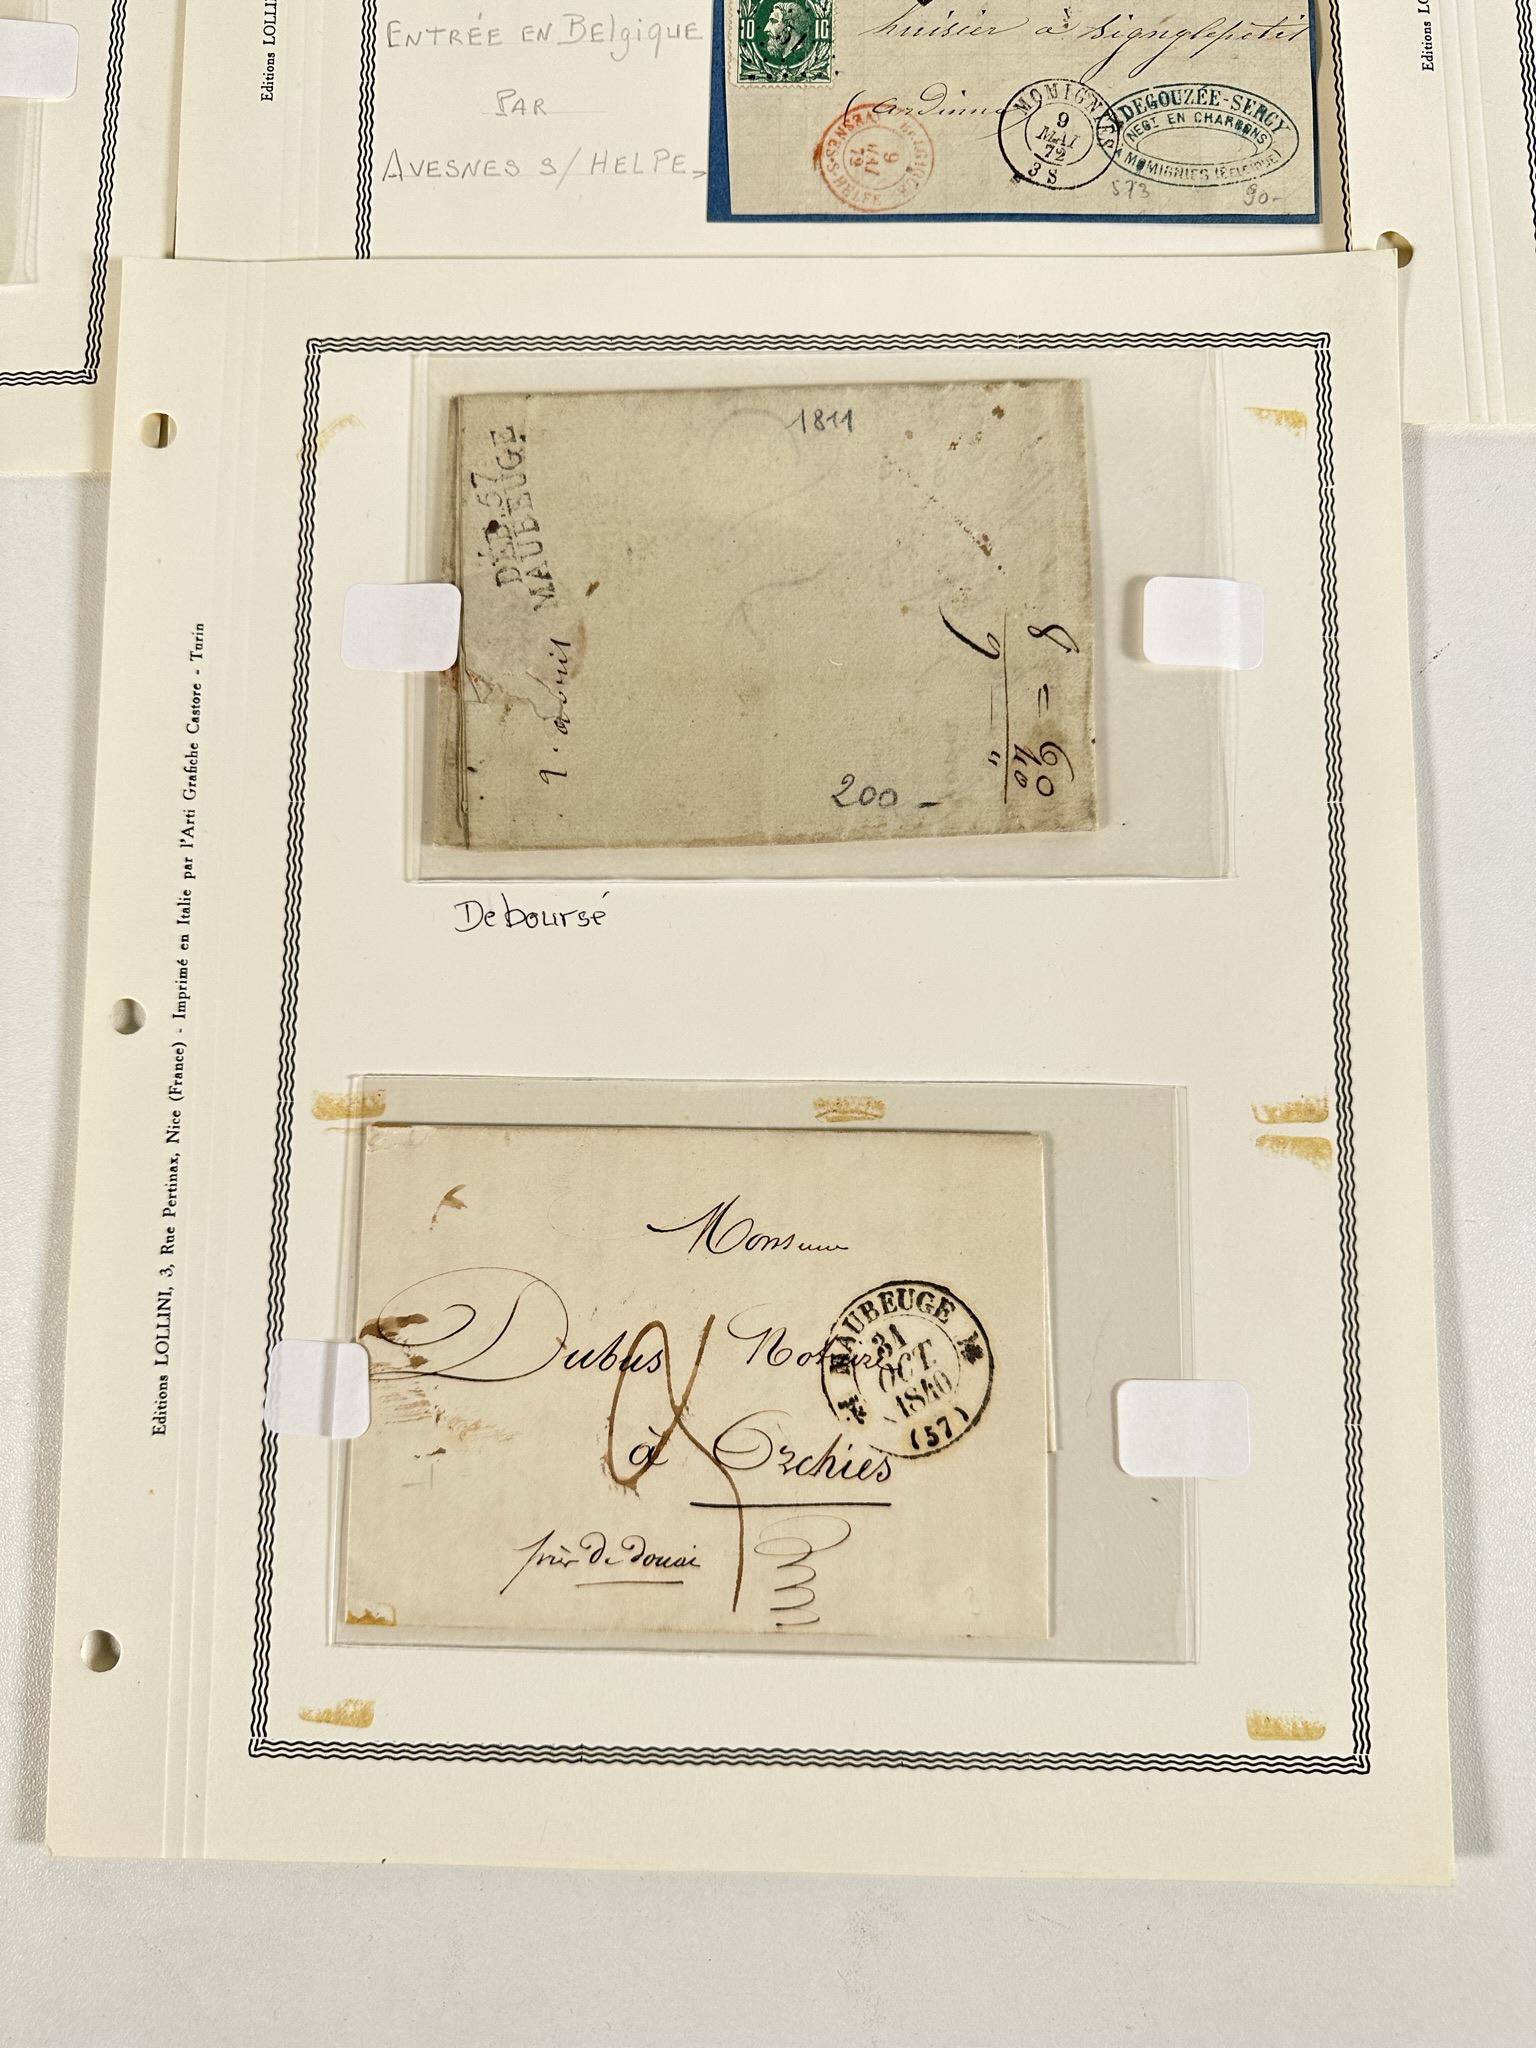 Editions LOLLINI
ENTRÉE EN BElgique
PAR
AVESNES S/HELPE
10
huisier à Signy le petit
(ardennes
BELGIQUE
9
MAI
72
MOMIGNIES
9
MAI
72
3 S
DEGOUZÉE-SERCY
NEGT EN CHARBONS
A MOMIGNIES (BELGIQUE)
573
90-
Editions LO
Editions LOLLINI, 3, Rue Pertinax, Nice (France) - Imprimé en Italie par l'Arti Grafiche Castore - Turin
1811
DÉB. 57
MAUBEUGE
8 = 60
40
9 = "
200 -
Deboursé
Monsieur
Dubus Notaire
à Orchies
près de Douai
MAUBEUGE
31
OCT.
1840
(57)